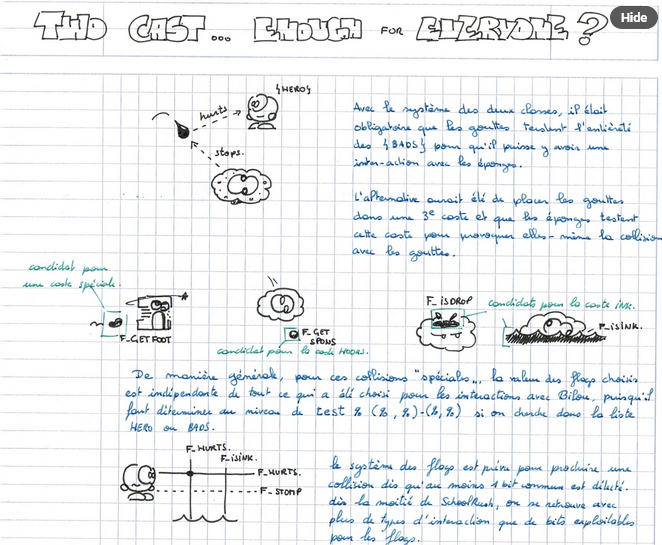 TWO CAST... ENOUGH FOR EVERYONE ?
Hide
{HERO}
hurts
stops.
Avec le système des deux classes, il était
obligatoire que les gouttes testent l'entièreté
des {BADS} pour qu'il puisse y avoir une
inter-action avec les éponges.
L'alternative aurait été de placer les gouttes
dans une 3e caste et que les éponges testent
cette caste pour provoquer elles-même la collision
avec les gouttes.
candidat pour
une caste spéciale.
F_GET FOOT
F_GET
SPONS
candidat pour la caste
F_isDROP
candidats pour la caste iNK.
F_isiNK.
De manière générale, pour ces collisions "spéciales", la valeur des flags choisis
est indépendante de tout ce qui a été choisi pour les interactions avec Bilou, puisqu'il
faut déterminer au niveau de test % (%,%)-(%,%) si on cherche dans la liste
HERO ou BADS.
F_HURTS.
F_isiNK.
F_HURTS.
F_STOMP
le système des flags est prévu pour produire une
collision dès qu'au moins 1 bit commun est détecté.
dès la moitié de SchoolRush, on se retrouve avec
plus de types d'interaction que de bits exploitables
pour les flags.